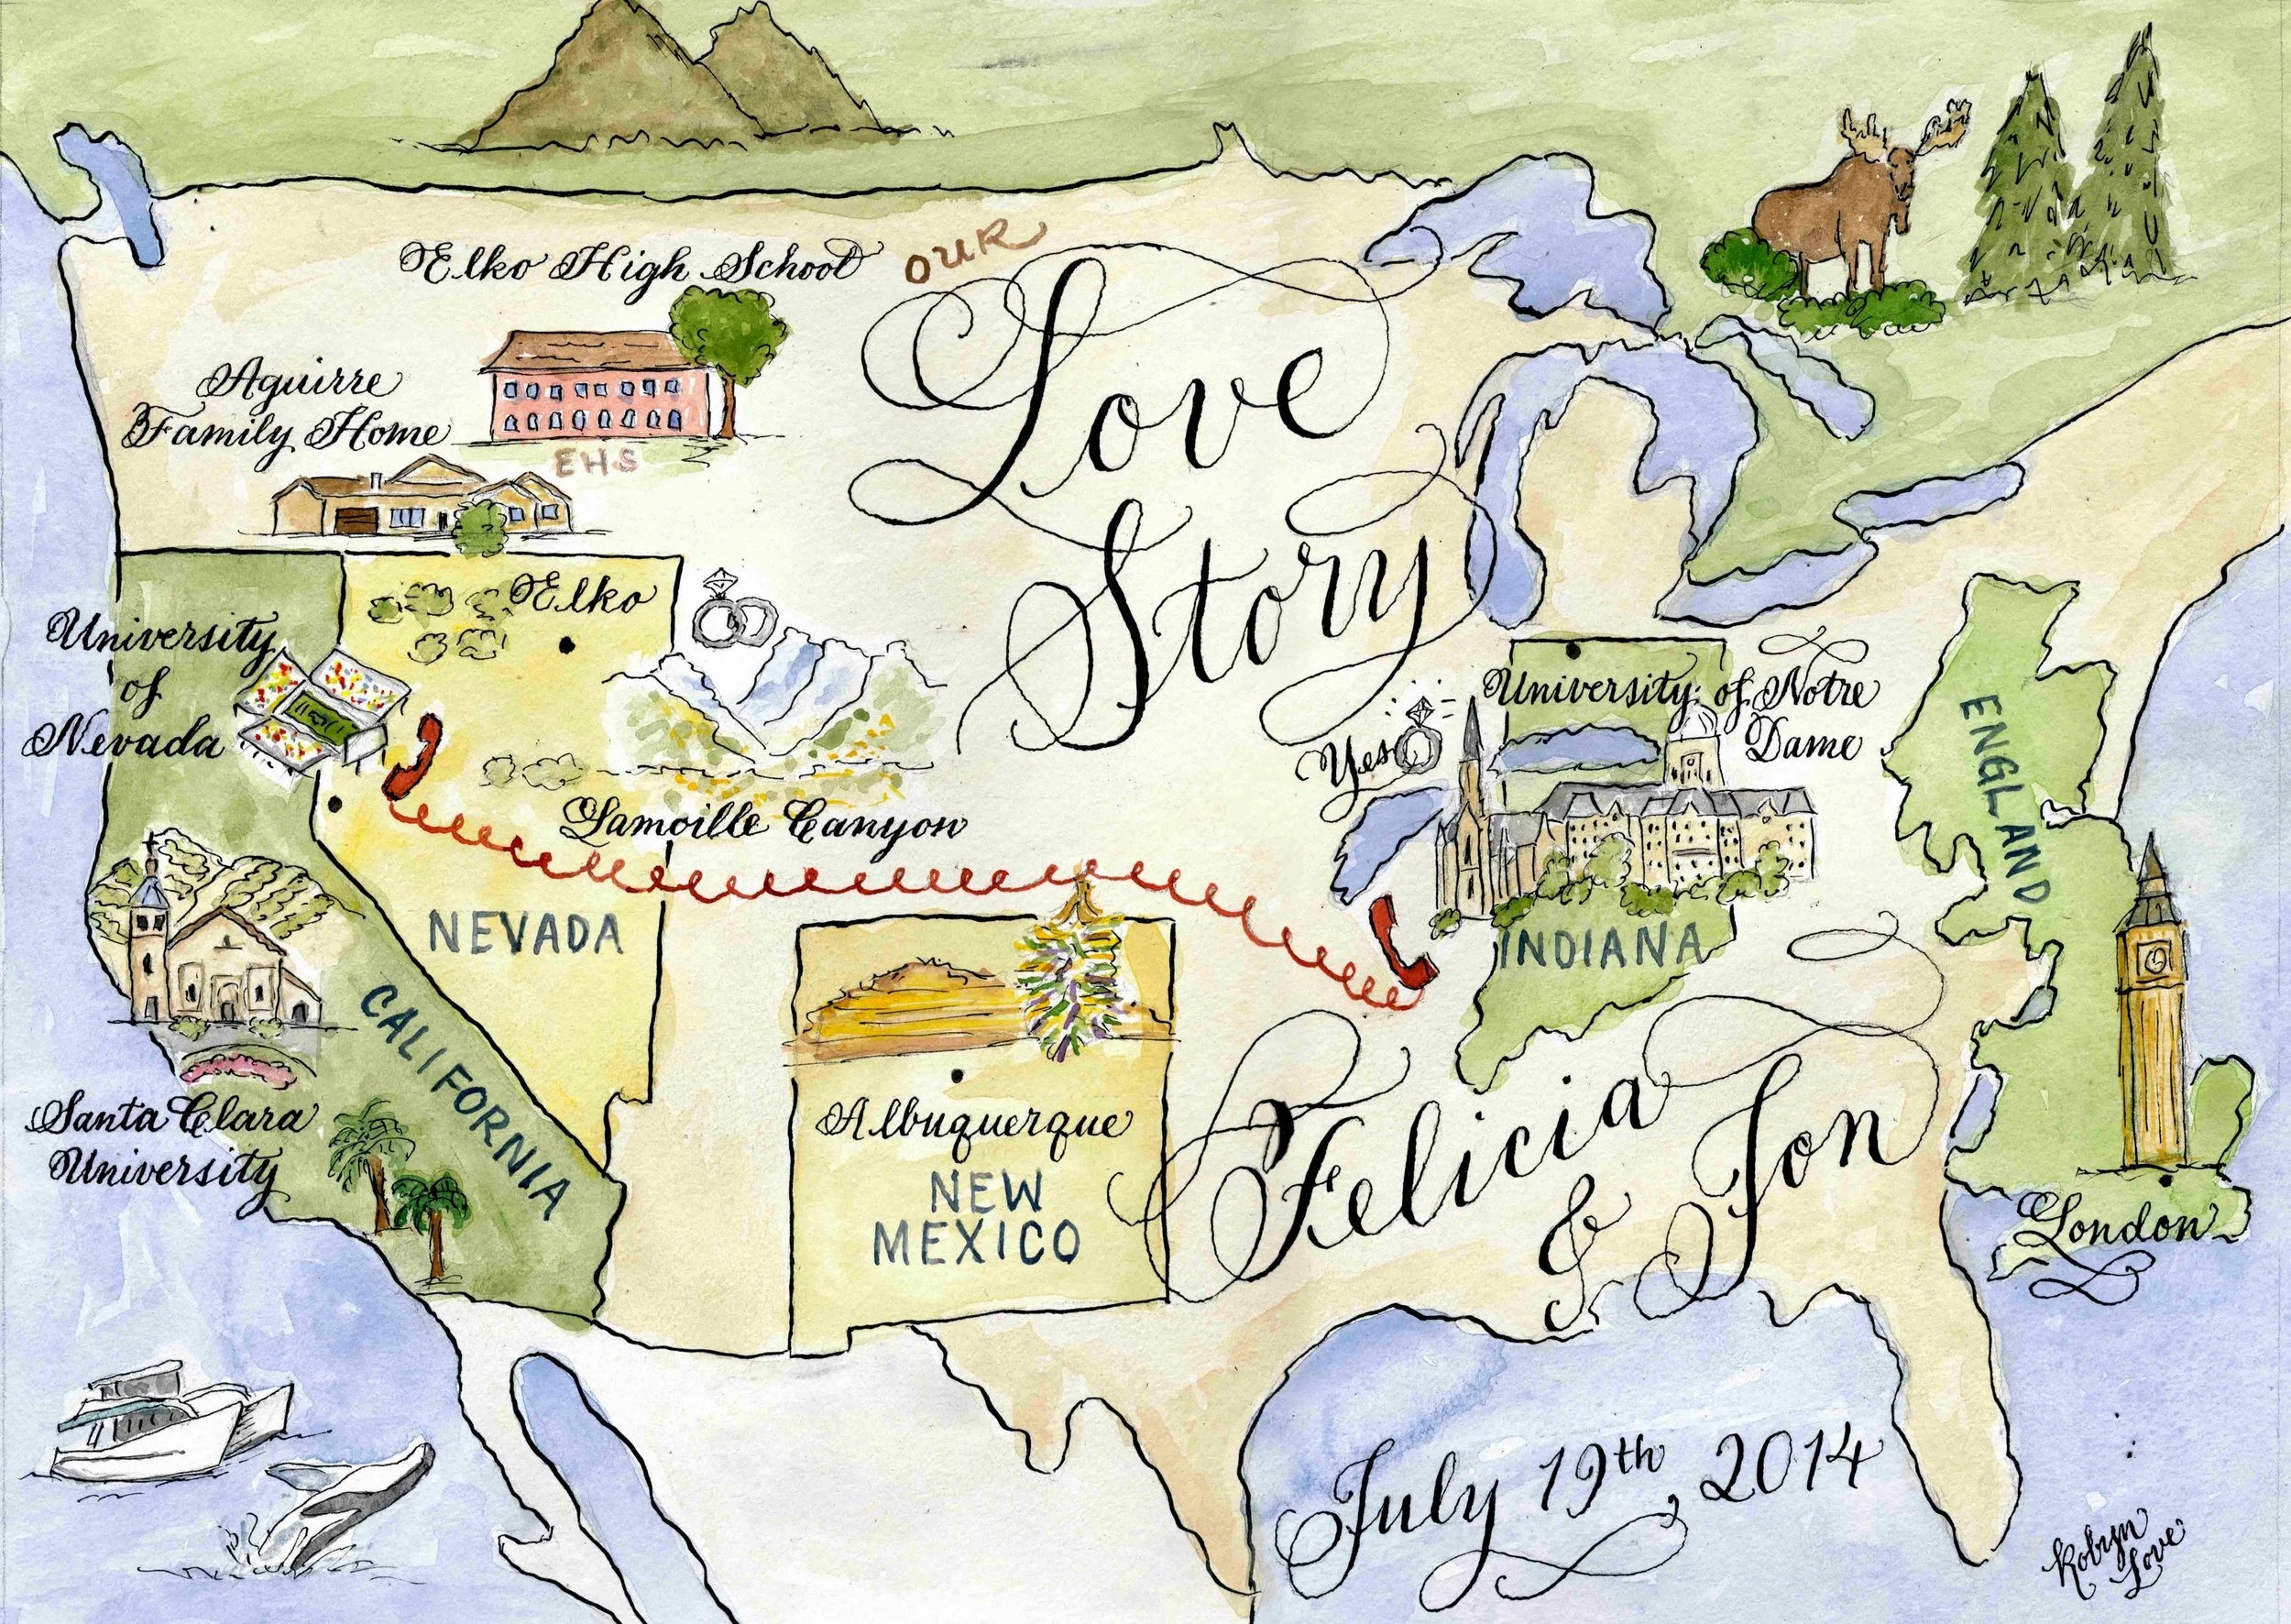 Elko High School
OUR
Love
Story
Aguirre
Family Home
EHS
University
of
Nevada
Elko
Lamoille Canyon
NEVADA
CALIFORNIA
Santa Clara
University
Albuquerque
NEW
MEXICO
Yes
University of Notre
Dame
INDIANA
ENGLAND
London
Felicia
&
Jon
July 19th, 2014
Robyn
Love